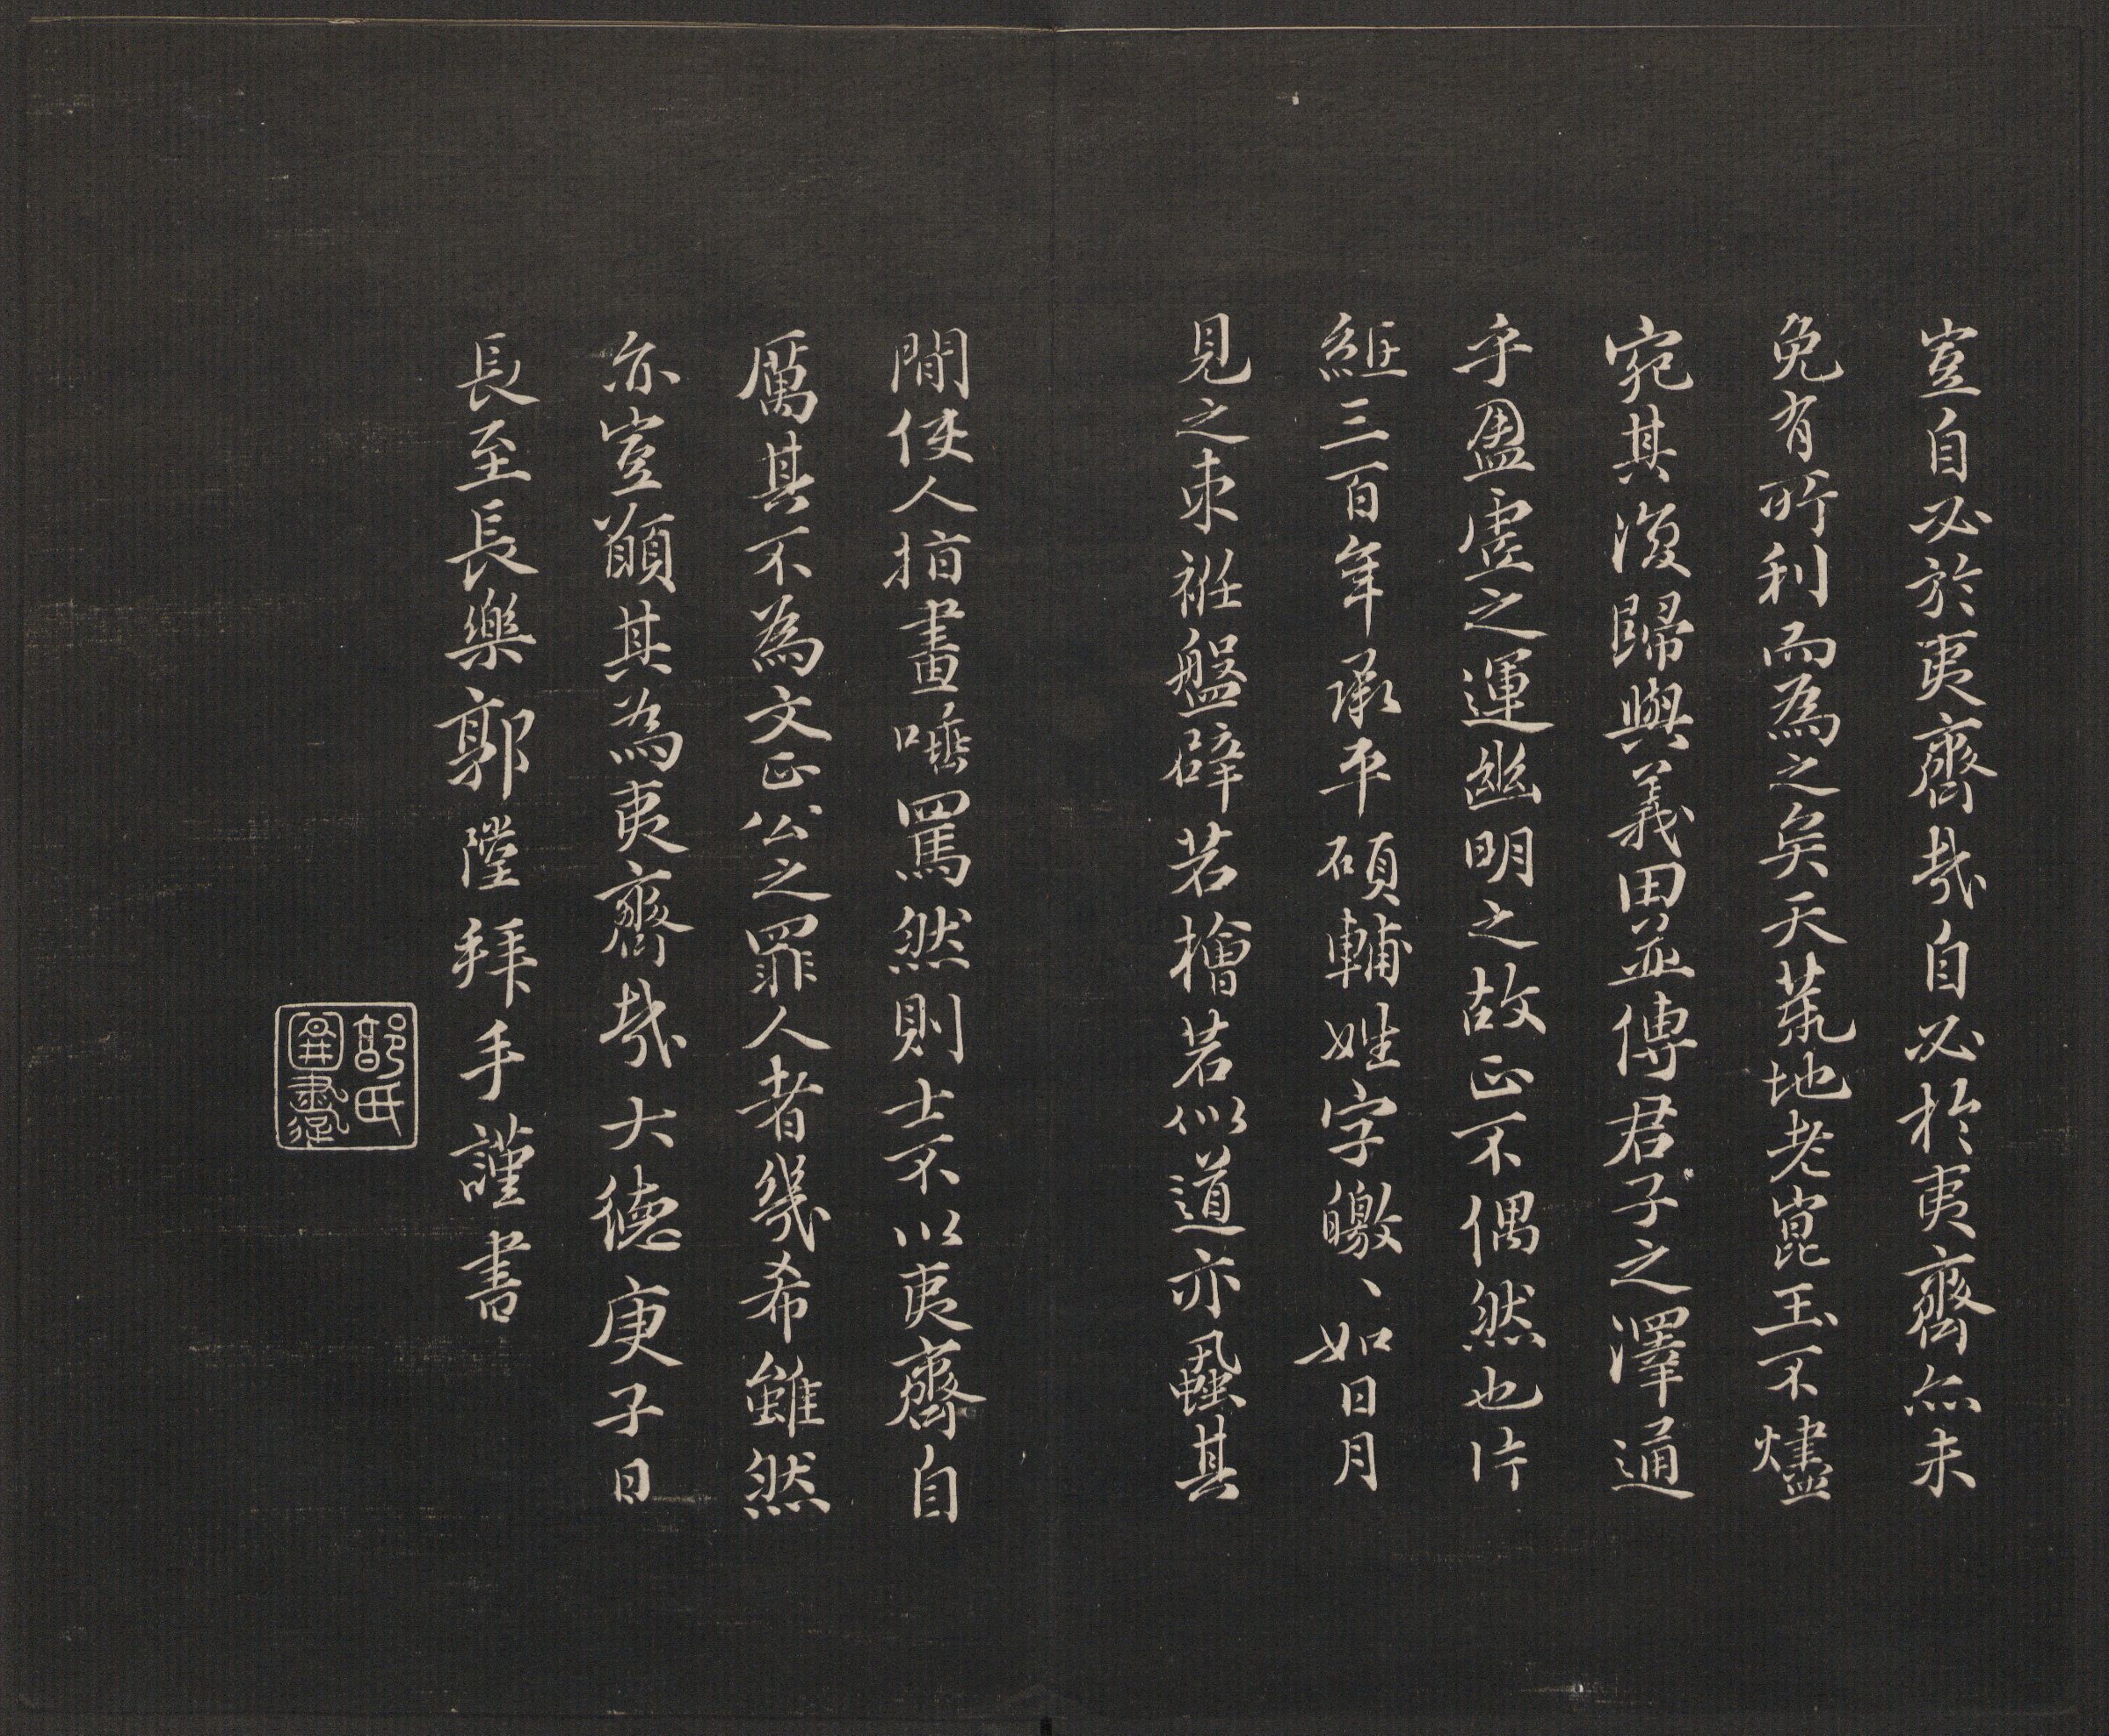 豈自必於夷齊哉自必於夷齊亦未
免有所利而為之矣天荒地老崑玉不燼
宛其復歸與義田並傳君子之澤通
乎盈虛之運幽明之故正不偶然也片
紙三百年承平碩輔姓字皦〻如日月
見之束袵盤辟若檜若似道亦蝨其
間使人指畫唾罵然則士不以夷齊自
厲其不為文正公之罪人者幾希雖然
亦豈願其為夷齊哉大德庚子日
長至長樂郭隚拜手謹書
郭氏
圖書